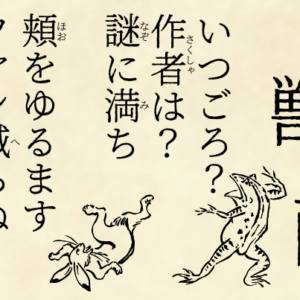 獣
いつごろ？
さくしゃ
作者は？
なぞ み
謎に満ち
ほお
頬をゆるます
へ
ファン減らぬ